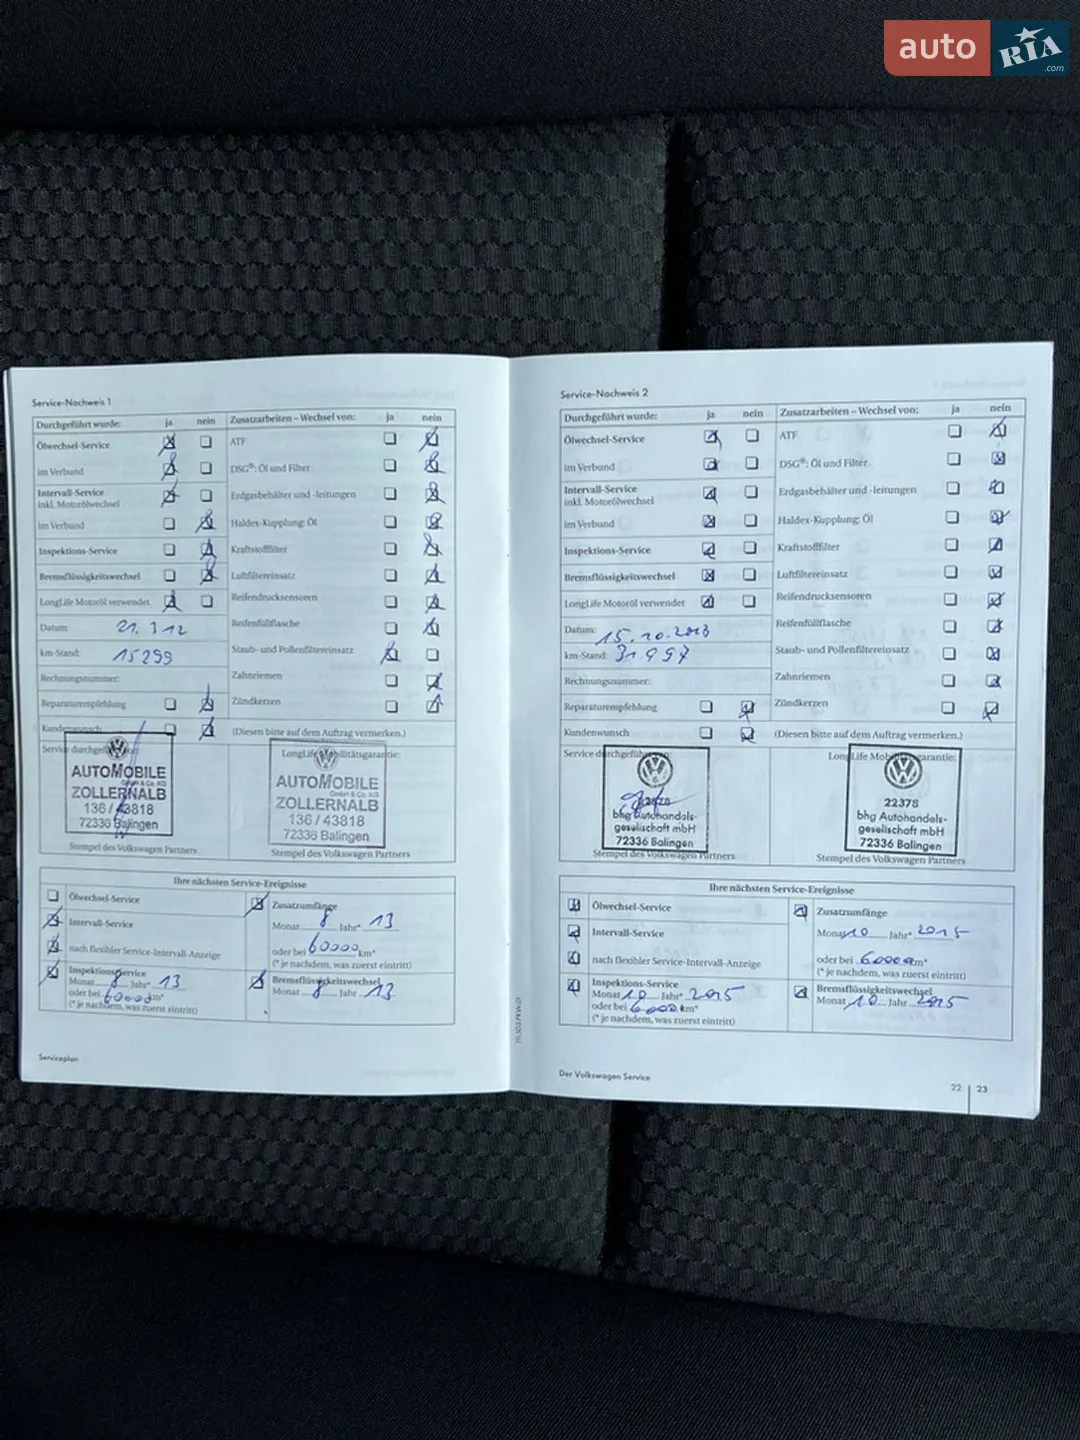 auto RIA.com
Service-Nachweis 1
Durchgeführt wurde: ja nein Zusatzarbeiten – Wechsel von: ja nein
Ölwechsel-Service ATF
im Verbund DSG®: Öl und Filter
Intervall-Service
inkl. Motorölwechsel Erdgasbehälter und -leitungen
im Verbund Haldex-Kupplung: Öl
Inspektions-Service Kraftstofffilter
Bremsflüssigkeitswechsel Luftfiltereinsatz
LongLife Motoröl verwendet Reifendrucksensoren
Datum: 21.3.12 Reifenfüllflasche
km-Stand: 15299 Staub- und Pollenfiltereinsatz
Rechnungsnummer: Zahnriemen
Reparaturempfehlung Zündkerzen
Kundenwunsch (Diesen bitte auf dem Auftrag vermerken.)
Service durchgeführt von: LongLife Mobilitätsgarantie:
AUTOMOBILE AUTOMOBILE
GmbH & Co. KG GmbH & Co. KG
ZOLLERNALB ZOLLERNALB
136 / 43818 136 / 43818
72336 Balingen 72336 Balingen
Stempel des Volkswagen Partners Stempel des Volkswagen Partners
Ihre nächsten Service-Ereignisse
Ölwechsel-Service Zusatzumfänge
Intervall-Service Monat 8 Jahr* 13
nach flexibler Service-Intervall-Anzeige oder bei 60000 km*
(* je nachdem, was zuerst eintritt)
Inspektions-Service Bremsflüssigkeitswechsel
Monat 8 Jahr* 13 Monat 8 Jahr 13
oder bei 60000 km*
(* je nachdem, was zuerst eintritt)
Serviceplan
111.5D3.PKW.01
Service-Nachweis 2
Durchgeführt wurde: ja nein Zusatzarbeiten – Wechsel von: ja nein
Ölwechsel-Service ATF
im Verbund DSG®: Öl und Filter
Intervall-Service
inkl. Motorölwechsel Erdgasbehälter und -leitungen
im Verbund Haldex-Kupplung: Öl
Inspektions-Service Kraftstofffilter
Bremsflüssigkeitswechsel Luftfiltereinsatz
LongLife Motoröl verwendet Reifendrucksensoren
Datum: 15.10.2013 Reifenfüllflasche
km-Stand: 31997 Staub- und Pollenfiltereinsatz
Rechnungsnummer: Zahnriemen
Reparaturempfehlung Zündkerzen
Kundenwunsch (Diesen bitte auf dem Auftrag vermerken.)
Service durchgeführt von: LongLife Mobilitätsgarantie:
22378 22378
bhg Autohandels- bhg Autohandels-
gesellschaft mbH gesellschaft mbH
72336 Balingen 72336 Balingen
Stempel des Volkswagen Partners Stempel des Volkswagen Partners
Ihre nächsten Service-Ereignisse
Ölwechsel-Service Zusatzumfänge
Intervall-Service Monat 10 Jahr* 2015
nach flexibler Service-Intervall-Anzeige oder bei 60000 km*
(* je nachdem, was zuerst eintritt)
Inspektions-Service Bremsflüssigkeitswechsel
Monat 10 Jahr* 2015 Monat 10 Jahr 2015
oder bei 60000 km*
(* je nachdem, was zuerst eintritt)
Der Volkswagen Service
22 | 23